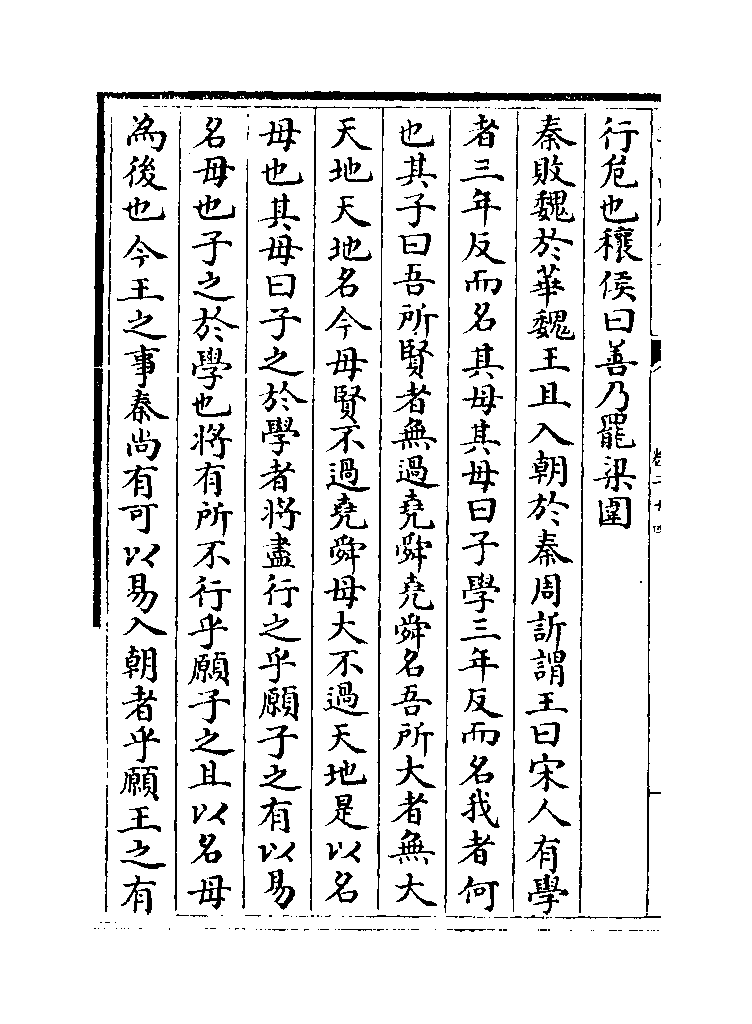 行危也穰侯曰善乃罷梁圍
秦敗魏於華魏王且入朝於秦周訢謂王曰宋人有學
者三年反而名其母其母曰子學三年反而名我者何
也其子曰吾所賢者無過堯舜堯舜名吾所大者無大
天地天地名今母賢不過堯舜母大不過天地是以名
母也其母曰子之於學者將盡行之乎願子之有以易
名母也子之於學也將有所不行乎願子之且以名母
為後也今王之事秦尚有可以易入朝者乎願王之有